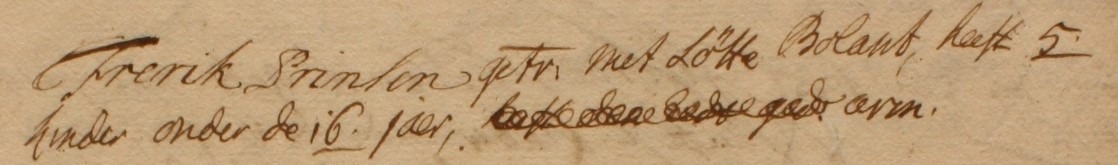 Frerik Prinsen getr. met Lötte Bolant, heeft 5
kinder onder de 16. jaer, arm.